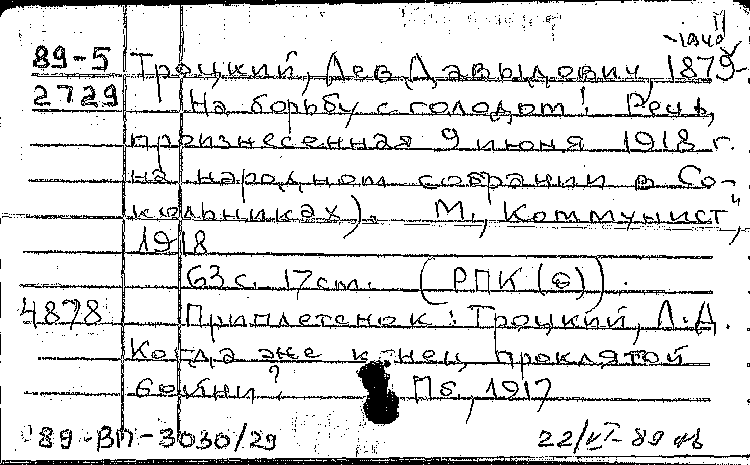 -1940
89-5 Троцкий, Лев Давыдович, 1879-
2729 На борьбу с голодом! Речь,
произнесенная 9 июня 1918 г.
на народном собрании в Со-
кольниках). М., "Коммунист",
1918
63 с. 17 cm. (РПК (б)).
4878 Приплетенок: Троцкий, Л.Д.
Когда же конец проклятой
бойни? Пб., 1917
89-ВП-3030/29 22/VI-89